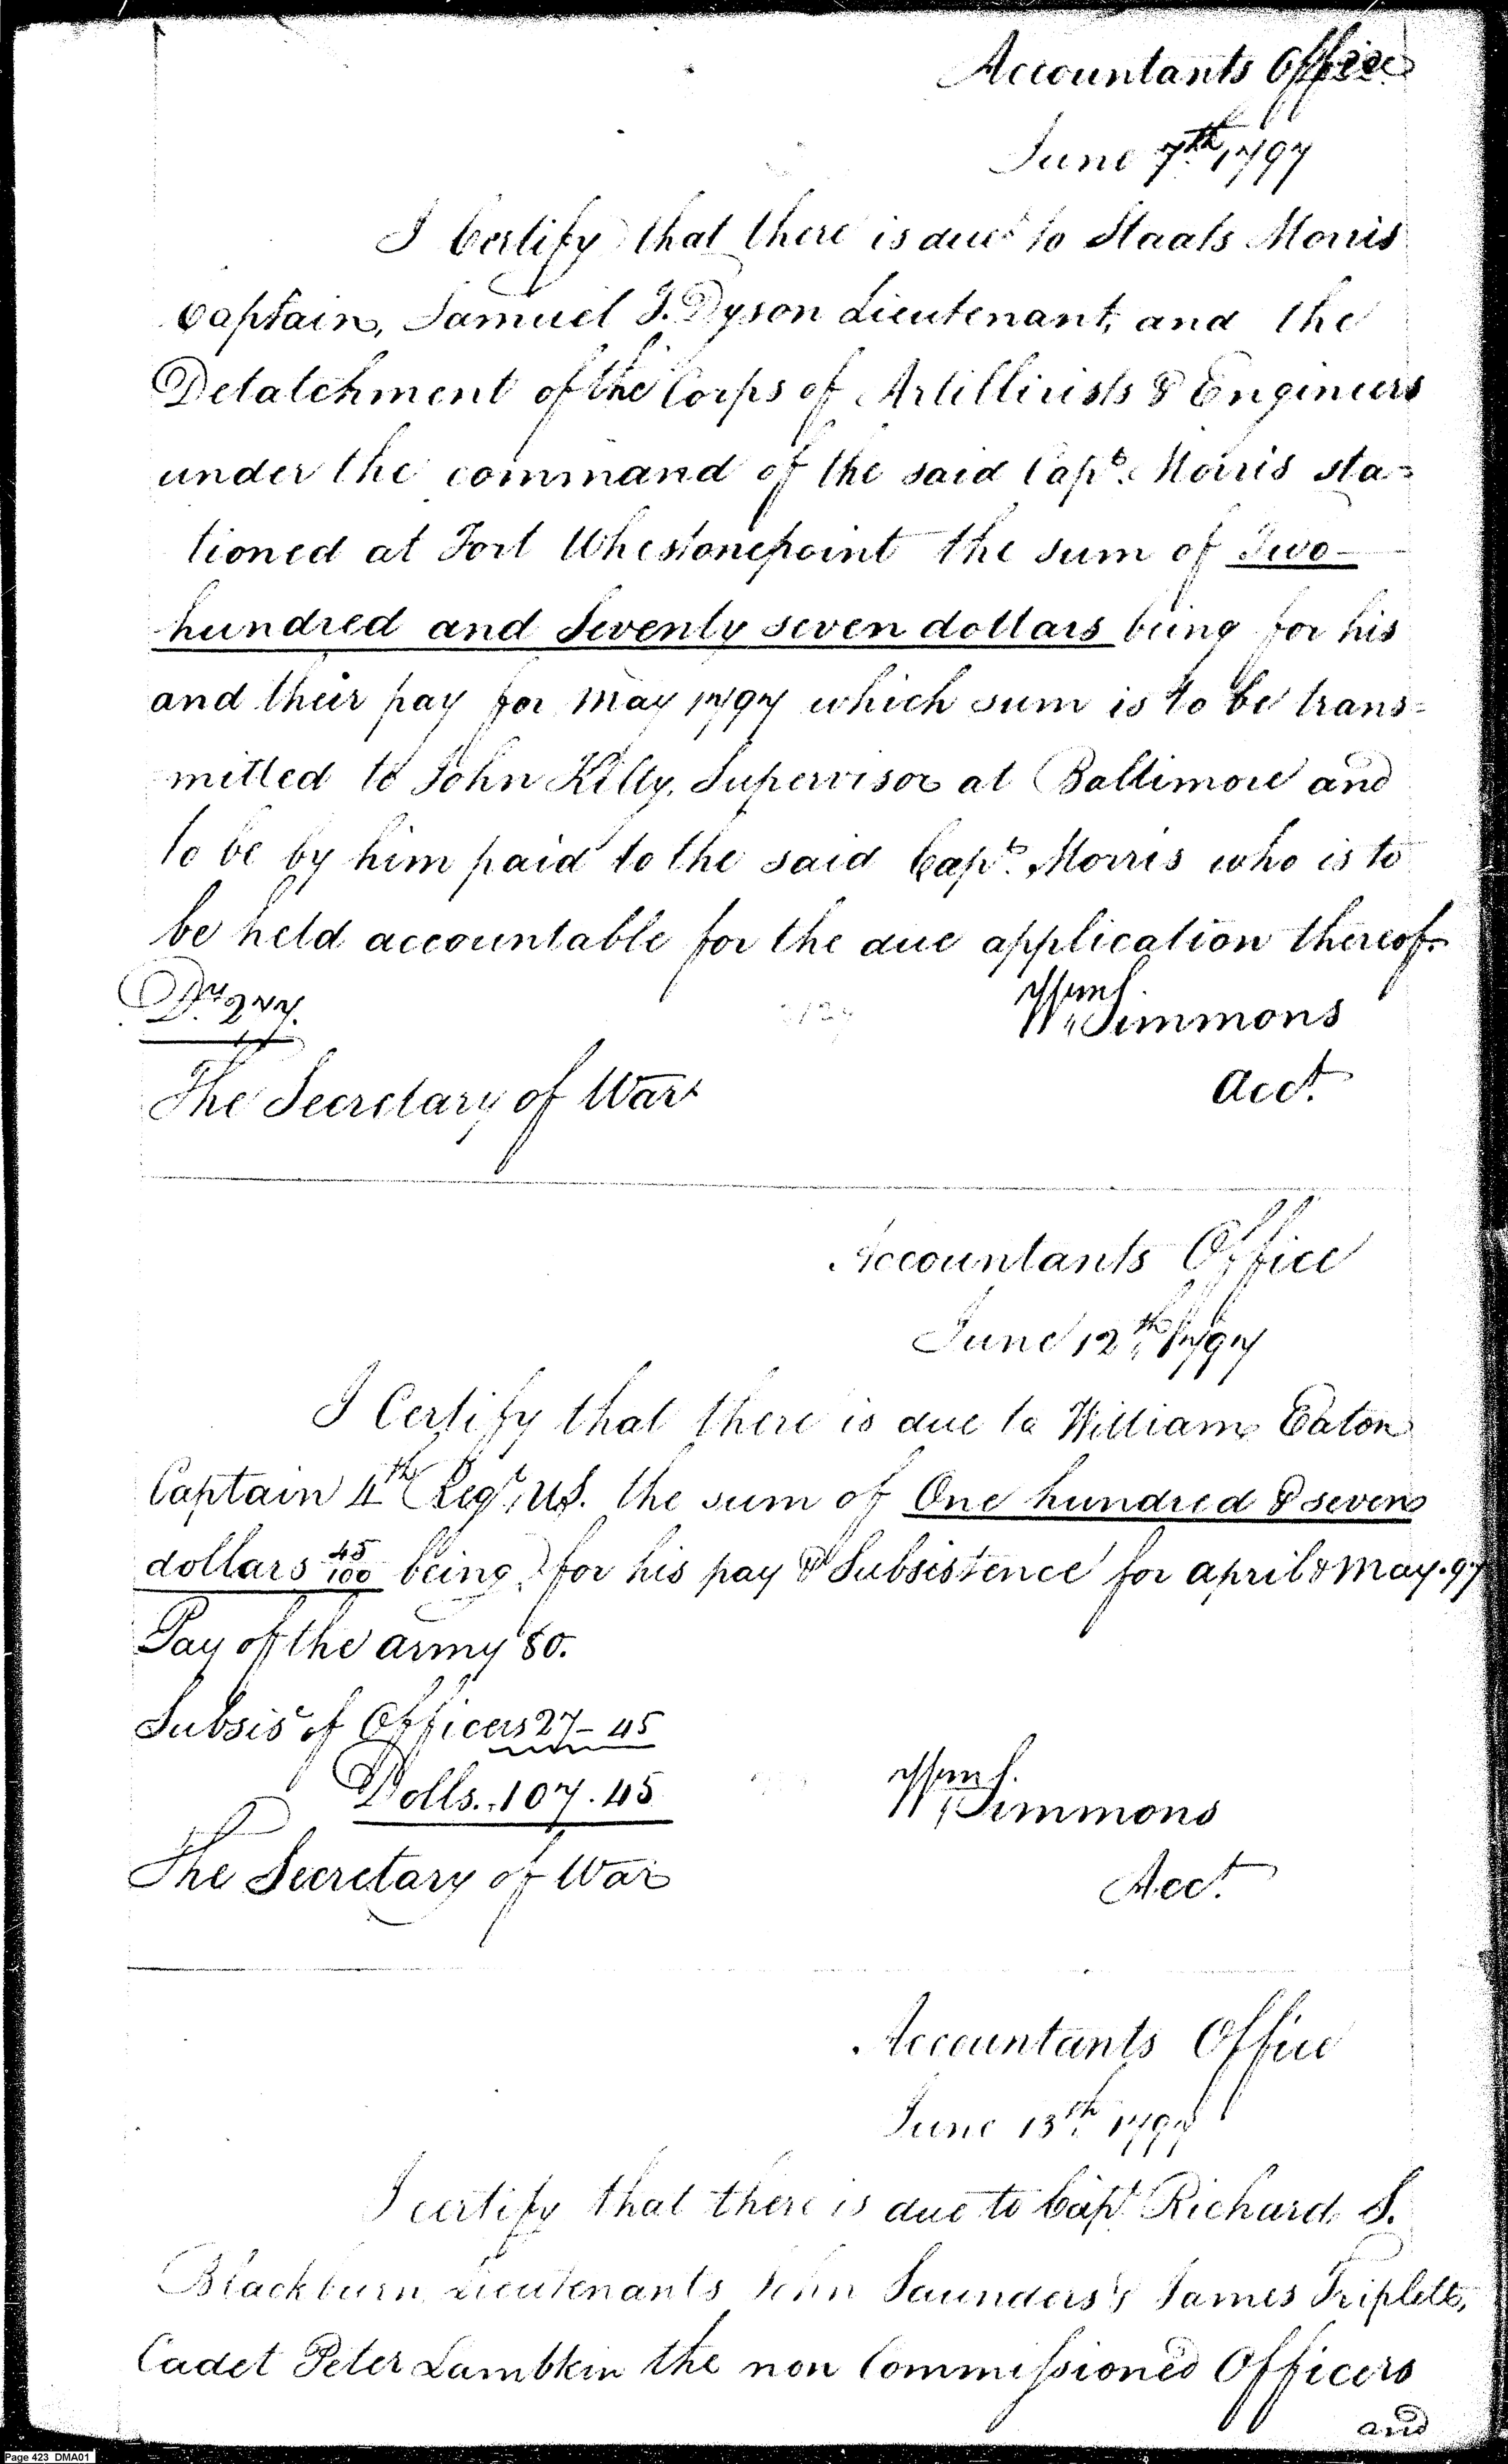 Accountants Office
June 7th 1797
I Certify that there is due to Staats Morris
Captain, Samuel T. Dyson Lieutenant, and the
Detatchment of the Corps of Artillirists & Engineers
under the command of the said Capt. Morris sta=
tioned at Fort Whestonepoint the sum of Two
hundred and Seventy seven dollars being for his
and their pay for May 1797 which sum is to be trans=
mitted to John Kilty, Supervisor at Baltimore and
to be by him paid to the said Capt. Morris who is to
be held accountable for the due application thereof.
Drs 277.
Wm Simmons
Acct.
The Secretary of War
Accountants Office
June 12th 1797
I Certify that there is due to William Eaton
Captain 4th Regt. US. the sum of One hundred & seven
dollars 45/100 being for his pay & Subsistence for april & May. 97
Pay of the army 80.
Subsis of Officers 27-45
Dolls. 107.45
Wm Simmons
The Secretary of War
Acct.
Accountants Office
June 13th 1797
I certify that there is due to Capt Richard S.
Blackburn Lieutenants John Saunders & James Triplett,
Cadet Peter Lambkin the non Commissioned Officers
and
Page 423 DMA01